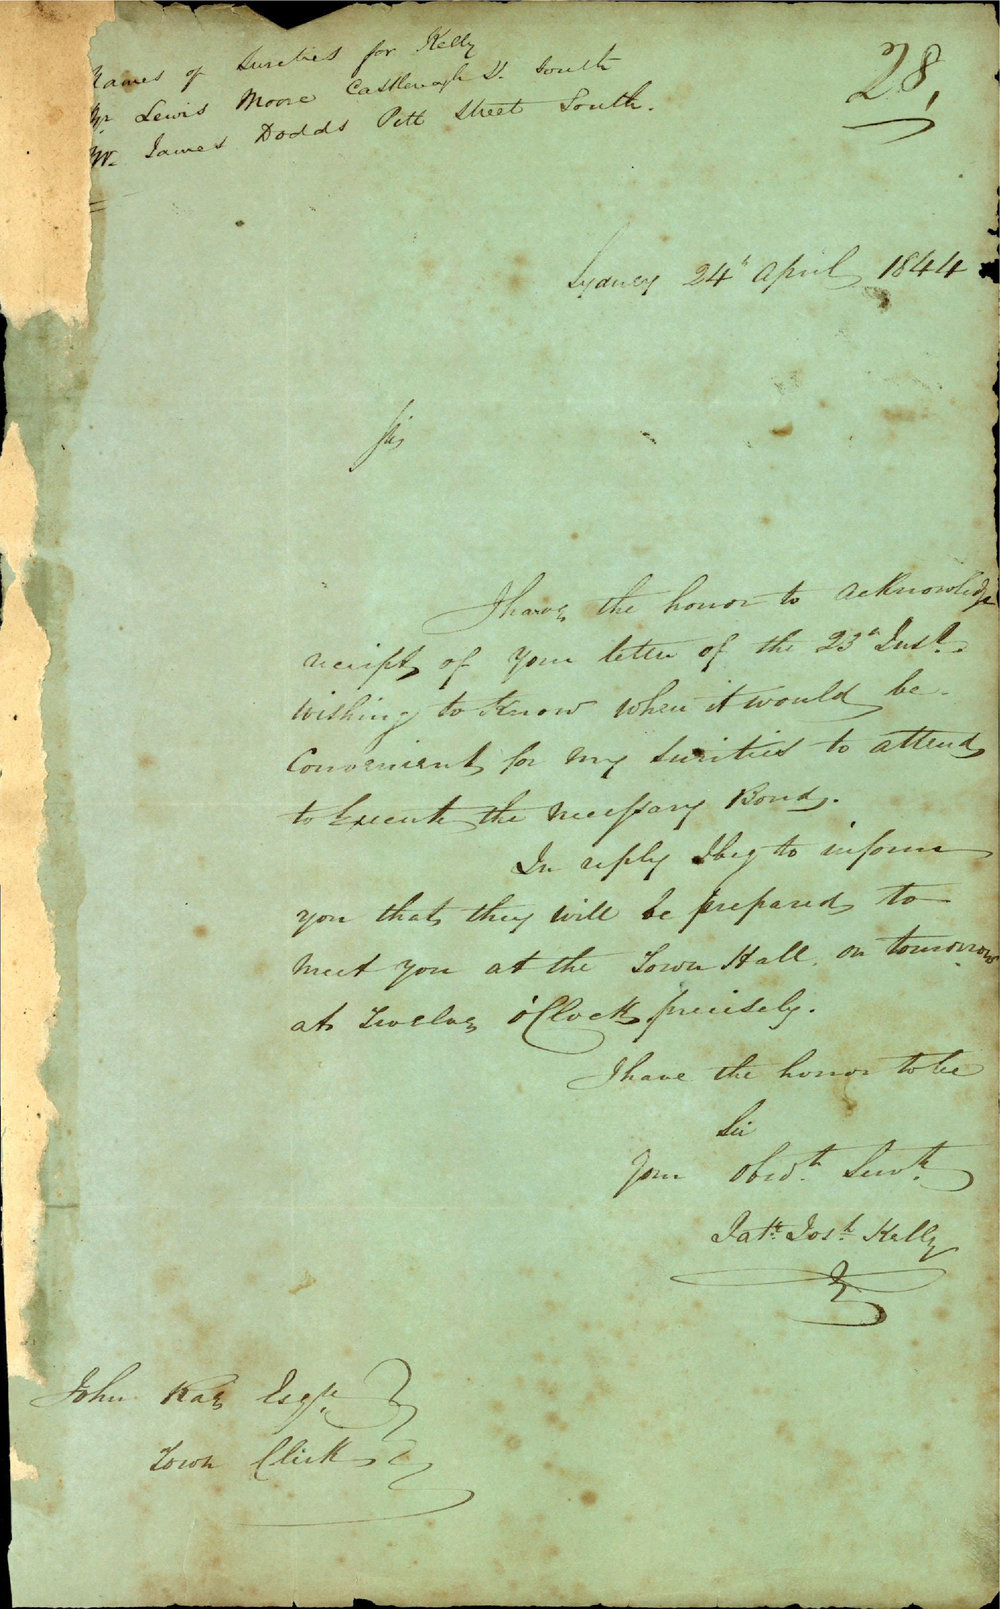 Names of Sureties for Kelly
Mr Lewis Moore Castlereagh St. South
Mr James Dodds Pitt Street South.
28,
Sydney 24th April 1844
Sir,
I have the honor to acknowledge
receipt of your letter of the 23d Inst.
wishing to Know when it would be
Convenient for my Sureties to attend
to Execute the necessary Bond.
In reply I beg to inform
you that they will be prepared to
meet you at the Town Hall on tomorrow
at Twelve o'Clock precisely.
I have the honor to be
Sir
Your Obedt. Servt.
Patk. Josh. Kelly
John Rae Esqre.
Town Clerk